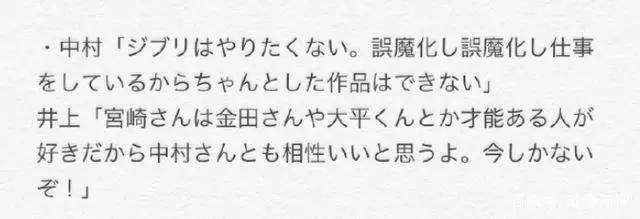 ・中村「ジブリはやりたくない。誤魔化し誤魔化し仕事
をしているからちゃんとした作品はできない」
井上「宮崎さんは金田さんや大平くんとか才能ある人が
好きだから中村さんとも相性いいと思うよ。今しかない
ぞ！」